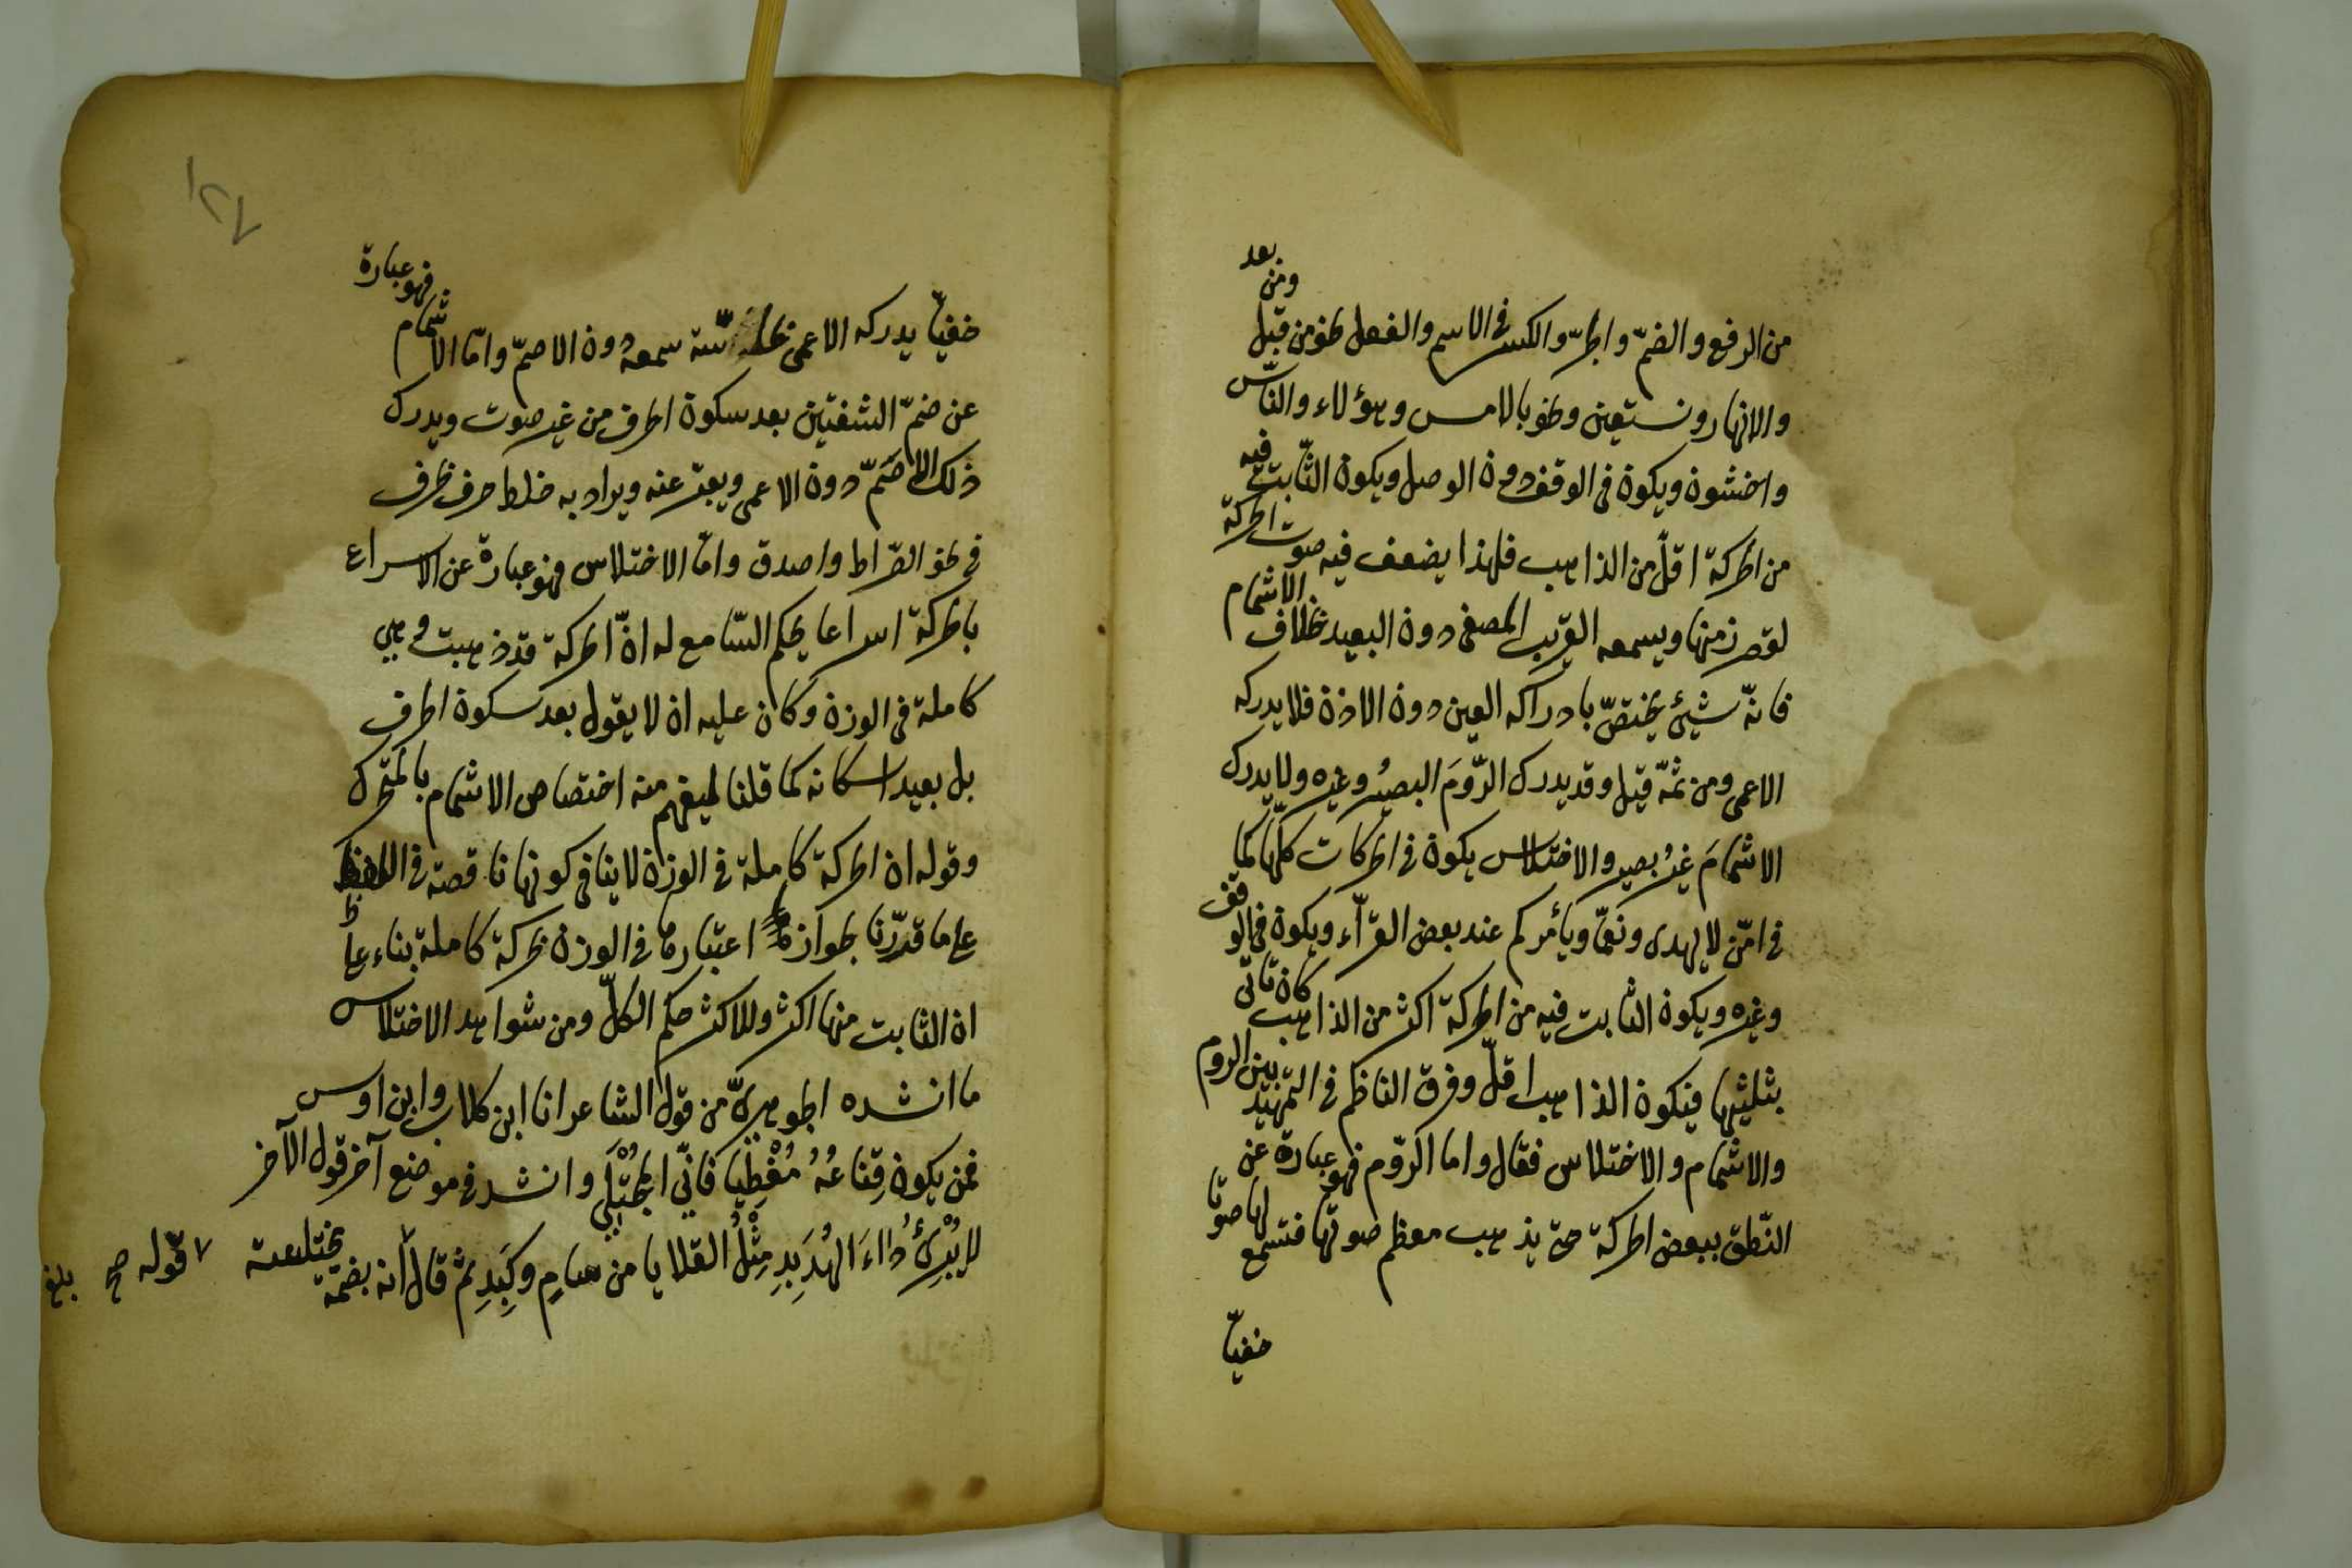 من الرفع والضمّ والجرّ والكسر فى الاسم والفعل نحو من قبل ومن بعد
والانهار ونستعين ونحو بالامس وهؤلاء والنّاس
واخشون ويكون فى الوقف دون الوصل ويكون الثّابت فيه
من الحركة اقلّ من الذاهب فلهذا يضعف فيه صوت الحركة
لقصر زمنها ويسمعه القريب المصغى دون البعيد بخلاف الاشمام
فانّه شيئ يختصّ بادراكه العين دون الاذن فلا يدركه
الاعمى ومن ثمّة قيل وقد يدرك الرّومَ البصيرُ وغيره ولا يدرك
الاشمامَ غيرُ بصير والاختلاس يكون فى الحركات كلّها كما
فى امّن لا يهدى ونعمّا ويأمركم عند بعض القرّآء ويكون فى الوقف
وغيره ويكون الثابت فيه من الحركة اكثر من الذاهب كان تأتى
بثلثيها فيكون الذاهب اقلّ وفرق الناظم فى التمهيد بين الروم
والاشمام والاختلاس فقال واما الرّوم فهو عبارة عن
النّطق ببعض الحركة حتى يذهب معظم صوتها فتسمع لها صوتا
خفيّا
خفيّا يدركه الاعمى بحاسّة سمعه دون الاصمّ وامّا الاشمام فهو عبارة
عن ضمّ الشفتين بعد سكون الحرف من غير صوت ويدرك
ذلك الاصَمّ دون الاعمى ويعبّر عنه ويراد به خلط حرف بحرف
فى نحو الصّراط واصدق وامّا الاختلاس فهو عبارة عن الاسراع
بالحركة اسراعا يحكم السّامع له انّ الحركة قد ذهبت وهى
كاملة فى الوزن وكان عليه ان لا يقول بعد سكون الحرف
بل بعيد اسكانه كما قلنا ليفهم منه اختصاص الاشمام بالمتحرك
وقوله ان الحركة كاملة فى الوزن لا ينافى كونها ناقصة فى اللفظ
على ما قدّرنا لجواز اعتبارها فى الوزن بحركة كاملة بناء على
ان الثابت منها اكثر وللاكثر حكم الكلّ ومن شواهد الاختلاس
ما انشده الجوهرىّ من قول الشاعر انا ابن كلاب وابن اوس
فمن يكون قِناعُهُ مُغْطِيًا فانّى لمُجْتَلِى وانشد فى موضع آخر قول الآخر
لا يُبْرِئُ داءَ الهُدَبِدِ مِثْلُ القلايا من سنامٍ وكَبِدِ ثم قال انه بضمّة مختلسة
٧ قوله صح
بلغ